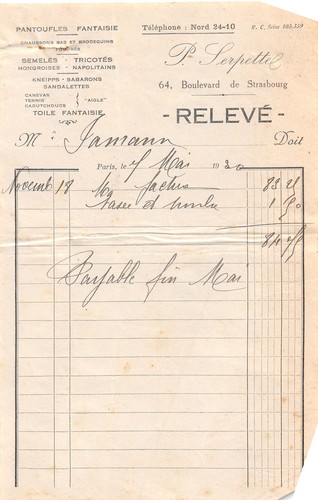 PANTOUFLES FANTAISIE
CHAUSSONS BAS ET BRODEQUINS
FOURRÉS
SEMELLES - TRICOTÉS
HONGROISES - NAPOLITAINS
KNEIPPS - BABARONS
SANDALETTES
CANEVAS
TENNIS "AIGLE"
CAOUTCHOUCS
TOILE FANTAISIE
Téléphone : Nord 24-10
R. C. Seine 105.359
P. Serpette
64, Boulevard de Strasbourg
- RELEVÉ -
M Jamann Doit
Paris, le 7 Mai 1930
18 Ma facture 83
taxe et timbre 1
84
Payable fin Mai